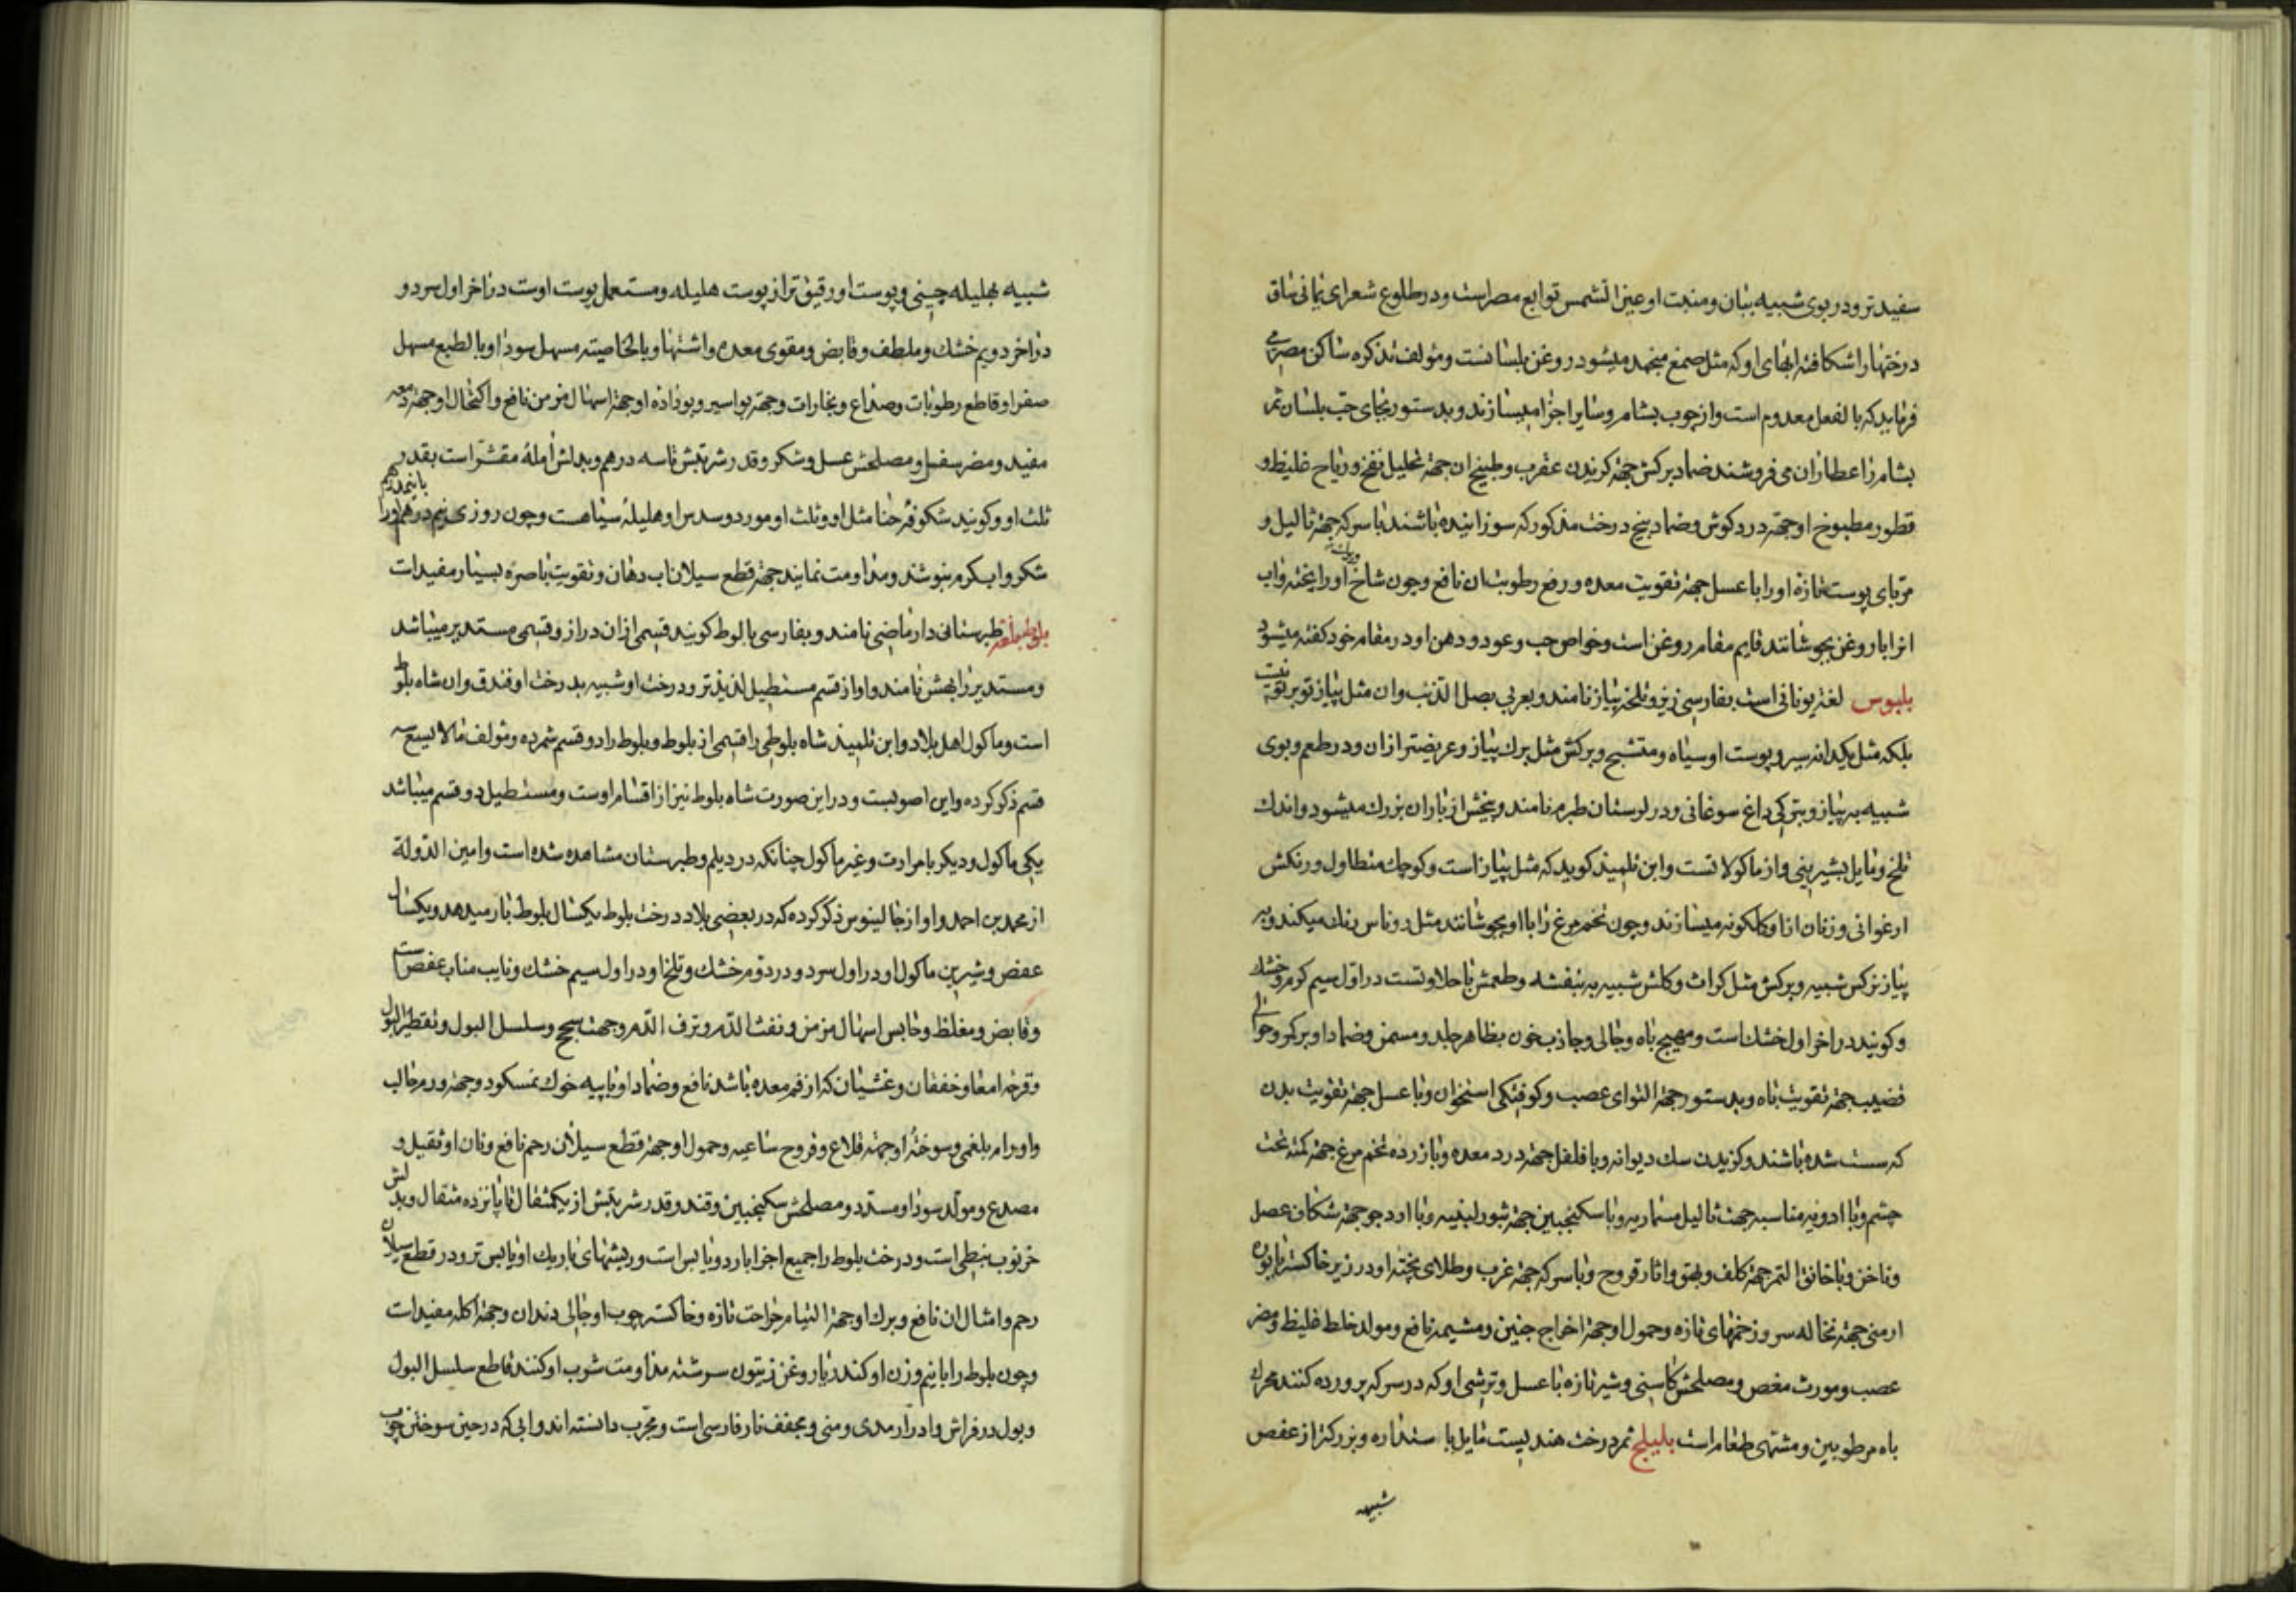 سفیدتر و در بوی شبیه بنان و منبت او عین الشمس توابع مصر است و در طلوع شعرای یمانی ساق
درختها را شکافته ابهای او که مثل صمغ منجمد میشود روغن بلسانست و مؤلف تذکره ساکن مصر می
فرماید که بالفعل معدوم است و از چوب بشام و سایر اجزا میسازند و بدستور بجای حب بلسان ثمر
بشام را عطاران می فروشند ضماد برکش جهة کزیدن عقرب و طبیخ ان جهة تحلیل نفخ و ریاح غلیظ و
قطور مطبوخ او جهة درد کوش و ضماد بیخ درخت مذکور که سوزانیده باشند با سرکه جهة ثالیل و
مربای پوست تازه او را با عسل جهة تقویت معده و رفع رطوبت ان نافع و چون شاخ او را پخته و اب
انرا با روغن بجوشانند قایم مقام روغن است و خواص حب و عود و دهن او در مقام خود کفته میشود
بلبوس لغة یونانی است بفارسی زیز و تلخه پیاز نامند و بعربی بصل الذئب و ان مثل پیاز تو بر تو نیست
بلکه مثل یکدانه سیر و پوست او سیاه و متشنج و برکش مثل برك پیاز و عریضتر از ان و در طعم و بوی
شبیه به پیاز و بترکی داغ سوغانی و در لرستان طبرم نامند و بیخش از باران بزرك میشود و اندك
تلخ و مایل بشیرینی و از ماکولاتست و ابن تلمیذ کوید که مثل پیاز است و کوچك متطاول و رنکش
ارغوانی و زنان از او کلکونه میسازند و چون تخم مرغ را با او بجوشانند مثل روناس رنك میکند و به
پیاز نرکس شبیه و برکش مثل کراث و کلش شبیه به بنفشه و طعمش با حلاوتست در اول سیم کرم و خشك
و کویند در اخر اول خشك است و مهیج باه و جالی و جاذب خون بظاهر جلد و مسمن و ضماد او بر کمر و حوالی
قضیب جهة تقویت باه و بدستور جهة التوای عصب و کوفتکی استخوان و با عسل جهة تقویت بدن
که سست شده باشند و کزیدن سك دیوانه و با فلفل جهة درد معده و با زرده تخم مرغ جهة کمنه تحت
چشم و با ادویه مناسبه جهت ثالیل مسماریه و با سکنجبین جهة بثور لبنیه و با ارد جو جهة شکاف عضل
و ناخن و با خانق النمر جهة کلف و بهق و اثار قروح و با سرکه جهة غرب و طلای پخته او در زیر خاکستر با بوره
ارمنی جهة نخاله سر و زخمهای تازه و حمول او جهة اخراج جنین و مشیمه نافع و مولد خلط غلیظ و مضر
عصب و مورث مغص و مصلحش کاسنی و شیر تازه با عسل و ترشی او که در سرکه پرورده کنند محرك
باه مرطوبین و مشتهی طعام است بلیلج ثمر درخت هندیست مایل با ستداره و بزرکتر از عفص
شبیه
شبیه بهلیله چینی و پوست او رقیق تر از پوست هلیله و مستعمل پوست اوست در اخر اول سرد و
در اخر دویم خشك و ملطف و قابض و مقوی معده و اشتها و بالخاصیته مسهل سودا و بالطبع مسهل
صفرا و قاطع رطوبات و صداع و بخارات و جهة بواسیر و بوداده او جهة اسهال مزمن نافع و اکتحال او جهة دمعه
مفید و مضر سفل و مصلحش عسل و شکر و قدر شربتش تا سه درهم و بدلش امله مقشر است بقدر
ثلث او و کویند شکوفه حنا مثل او و ثلث او مورد و سدس او هلیله سیاهست و چون روزی نیم درهم او را با نیم درهم
شکر و اب کرم بنوشند و مداومت نمایند جهة قطع سیلان اب دهان و تقویت باصره بسیار مفید است
بلوط بلغة طبرستانی دارماضی نامند و بفارسی بالوط کویند قسمی از ان دراز و قسمی مستدیر میباشد
و مستدیر را بهش نامند و او از قسم مستطیل لذیذتر و درخت او شبیه بدرخت او فندق و ان شاه بلوط
است و ماکول اهل بلاد و ابن تلمیذ شاه بلوطی را قسمی از بلوط و بلوط را دو قسم شمرده و مؤلف مالایسع سه
قسم ذکر کرده و این اصوبست و در این صورت شاه بلوط نیز از اقسام اوست و مستطیل دو قسم میباشد
یکی ماکول و دیکر با مرارت و غیر ماکول چنانکه در دیلم و طبرستان مشاهده شده است و امین الدولة
از محمد بن احمد و او از جالینوس ذکر کرده که در بعضی بلاد درخت بلوط یکسال بلوط بار میدهد و یکسال
عفص و شیرین ماکول او در اول سرد و در دوم خشك و تلخ او در اول سیم خشك و نایب مناب عفص است
و قابض و مغلظ و حابس اسهال مزمن و نفث الدم و نزف الدم و جهت سحج و سلسل البول و تقطیر البول
و قرحه امعا و خفقان و غشیان که از فم معده باشد نافع و ضماد او با پیه خوك نمسکود و جهة ورم حالب
و اورام بلغمی و سوخته او جهة قلاع و قروح ساعیه و حمول او جهة قطع سیلان رحم نافع و نان او ثقیل و
مصدع و مولد سودا و مسدد و مصلحش سکنجبین و قند و قدر شربتش از یکمثقال تا پانزده مثقال و بدلش
خرنوب نبطی است و درخت بلوط را جمیع اجزا بارد و یابس است و ریشهای باریك او یابس تر و در قطع سیلان
رحم و امثال ان نافع و برك او جهة التیام جراحت تازه و خاکستر چوب او جالی دندان و جهة اکله مفید است
و چون بلوط را با نیم وزن او کندر با روغن زیتون سرشته مداومت شرب او کنند قاطع سلسل البول
و بول در فراش و ادرار مدی و منی و مجفف نار فارسی است و مجرب دانسته اند و ابی که در حین سوختن چوب